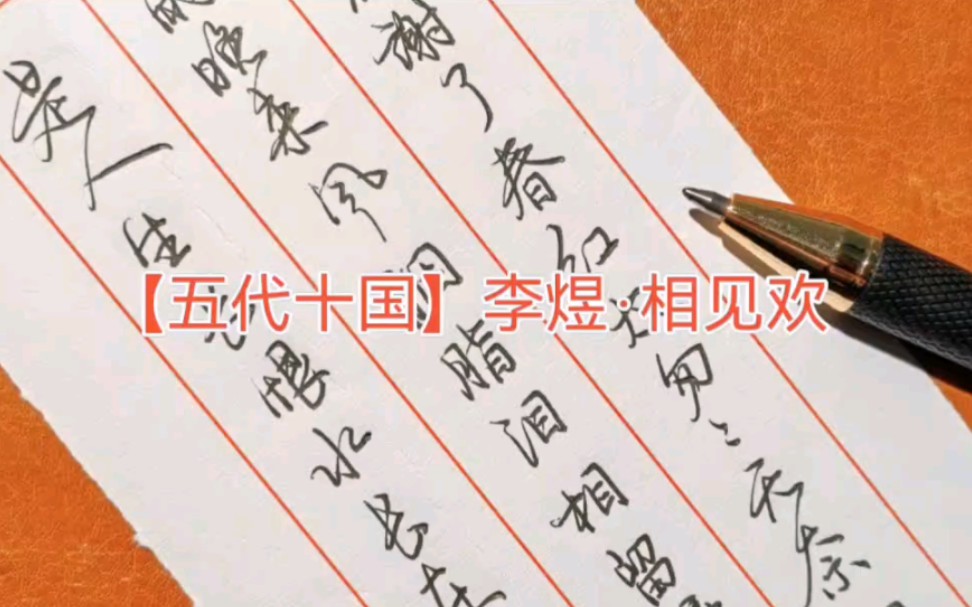 【五代十国】李煜·相见欢
谢了春红太匆々无奈
晚来风胭脂泪相留
是人生长恨水长东